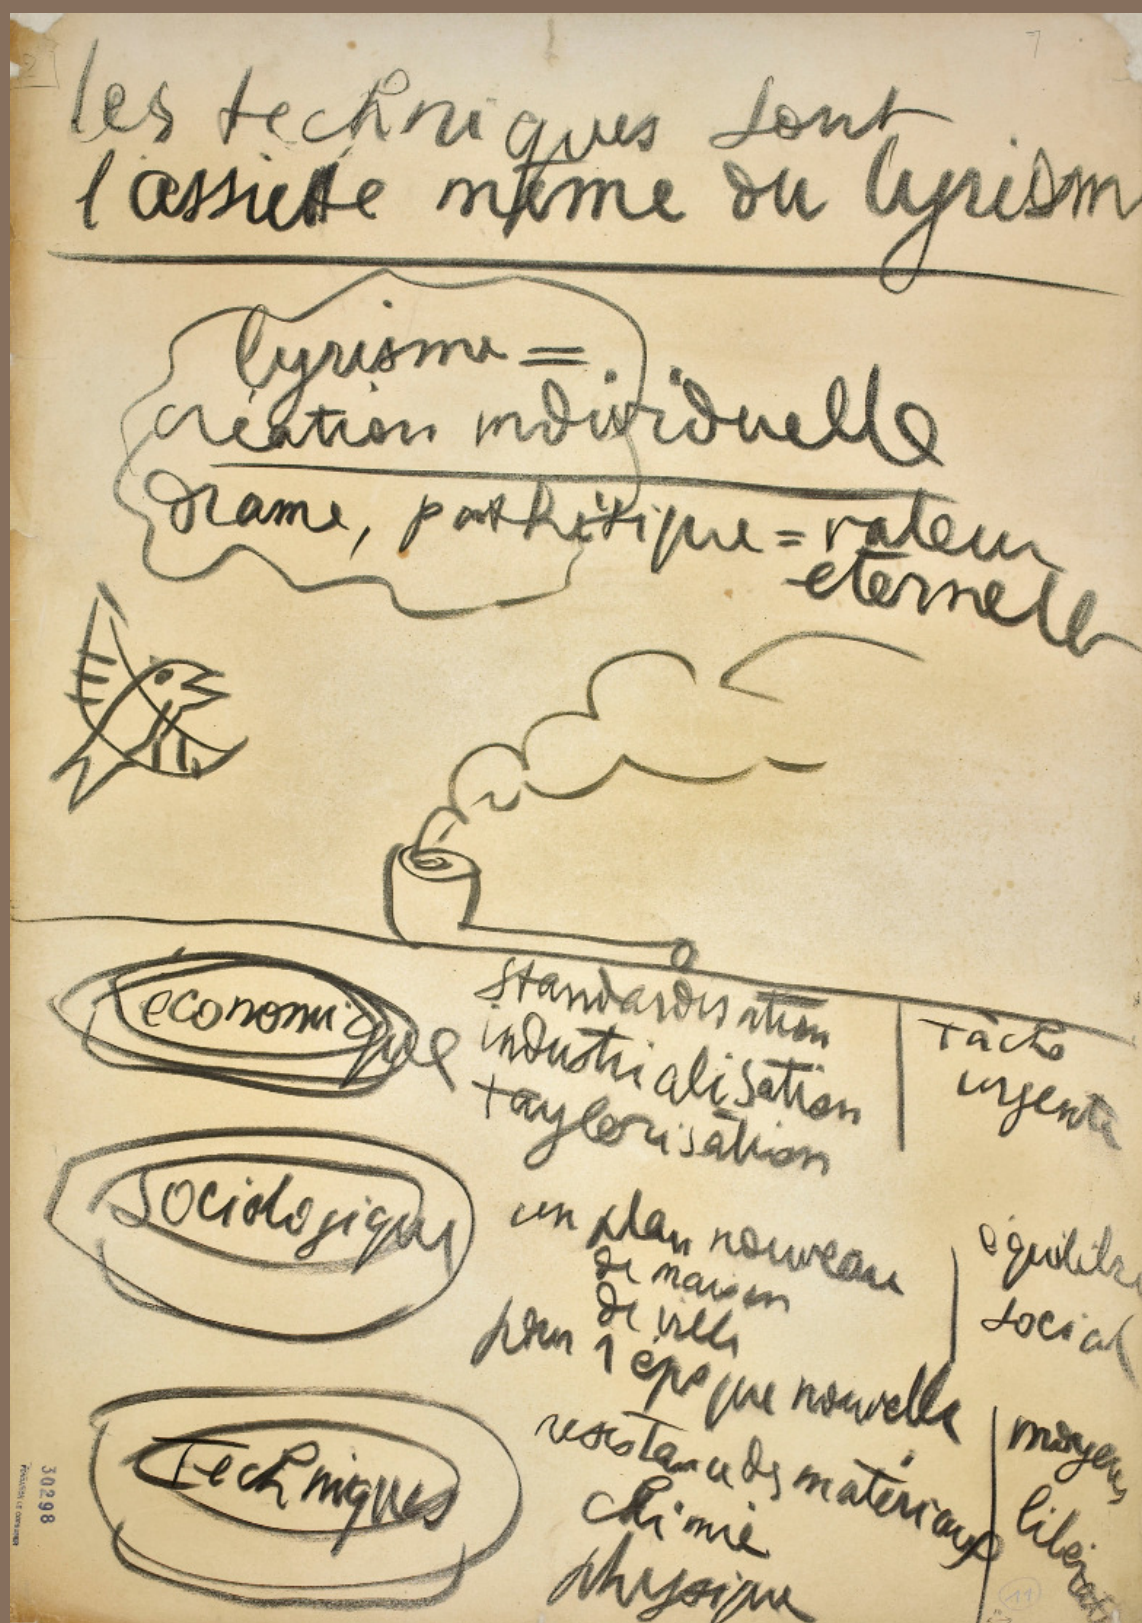 7
les techniques sont
l'assiette même du lyrism
lyrisme =
création individuelle
drame, pathétique = valeur
eternelle
économique
standardisation
industrialisation
taylorisation
tâche
urgente
Sociologique
un plan nouveau
de maison
de ville
pour 1 époque nouvelle
équilibre
social
Techniques
resistance des matériaux
chimie
physique
moyens
libérat
30298
11